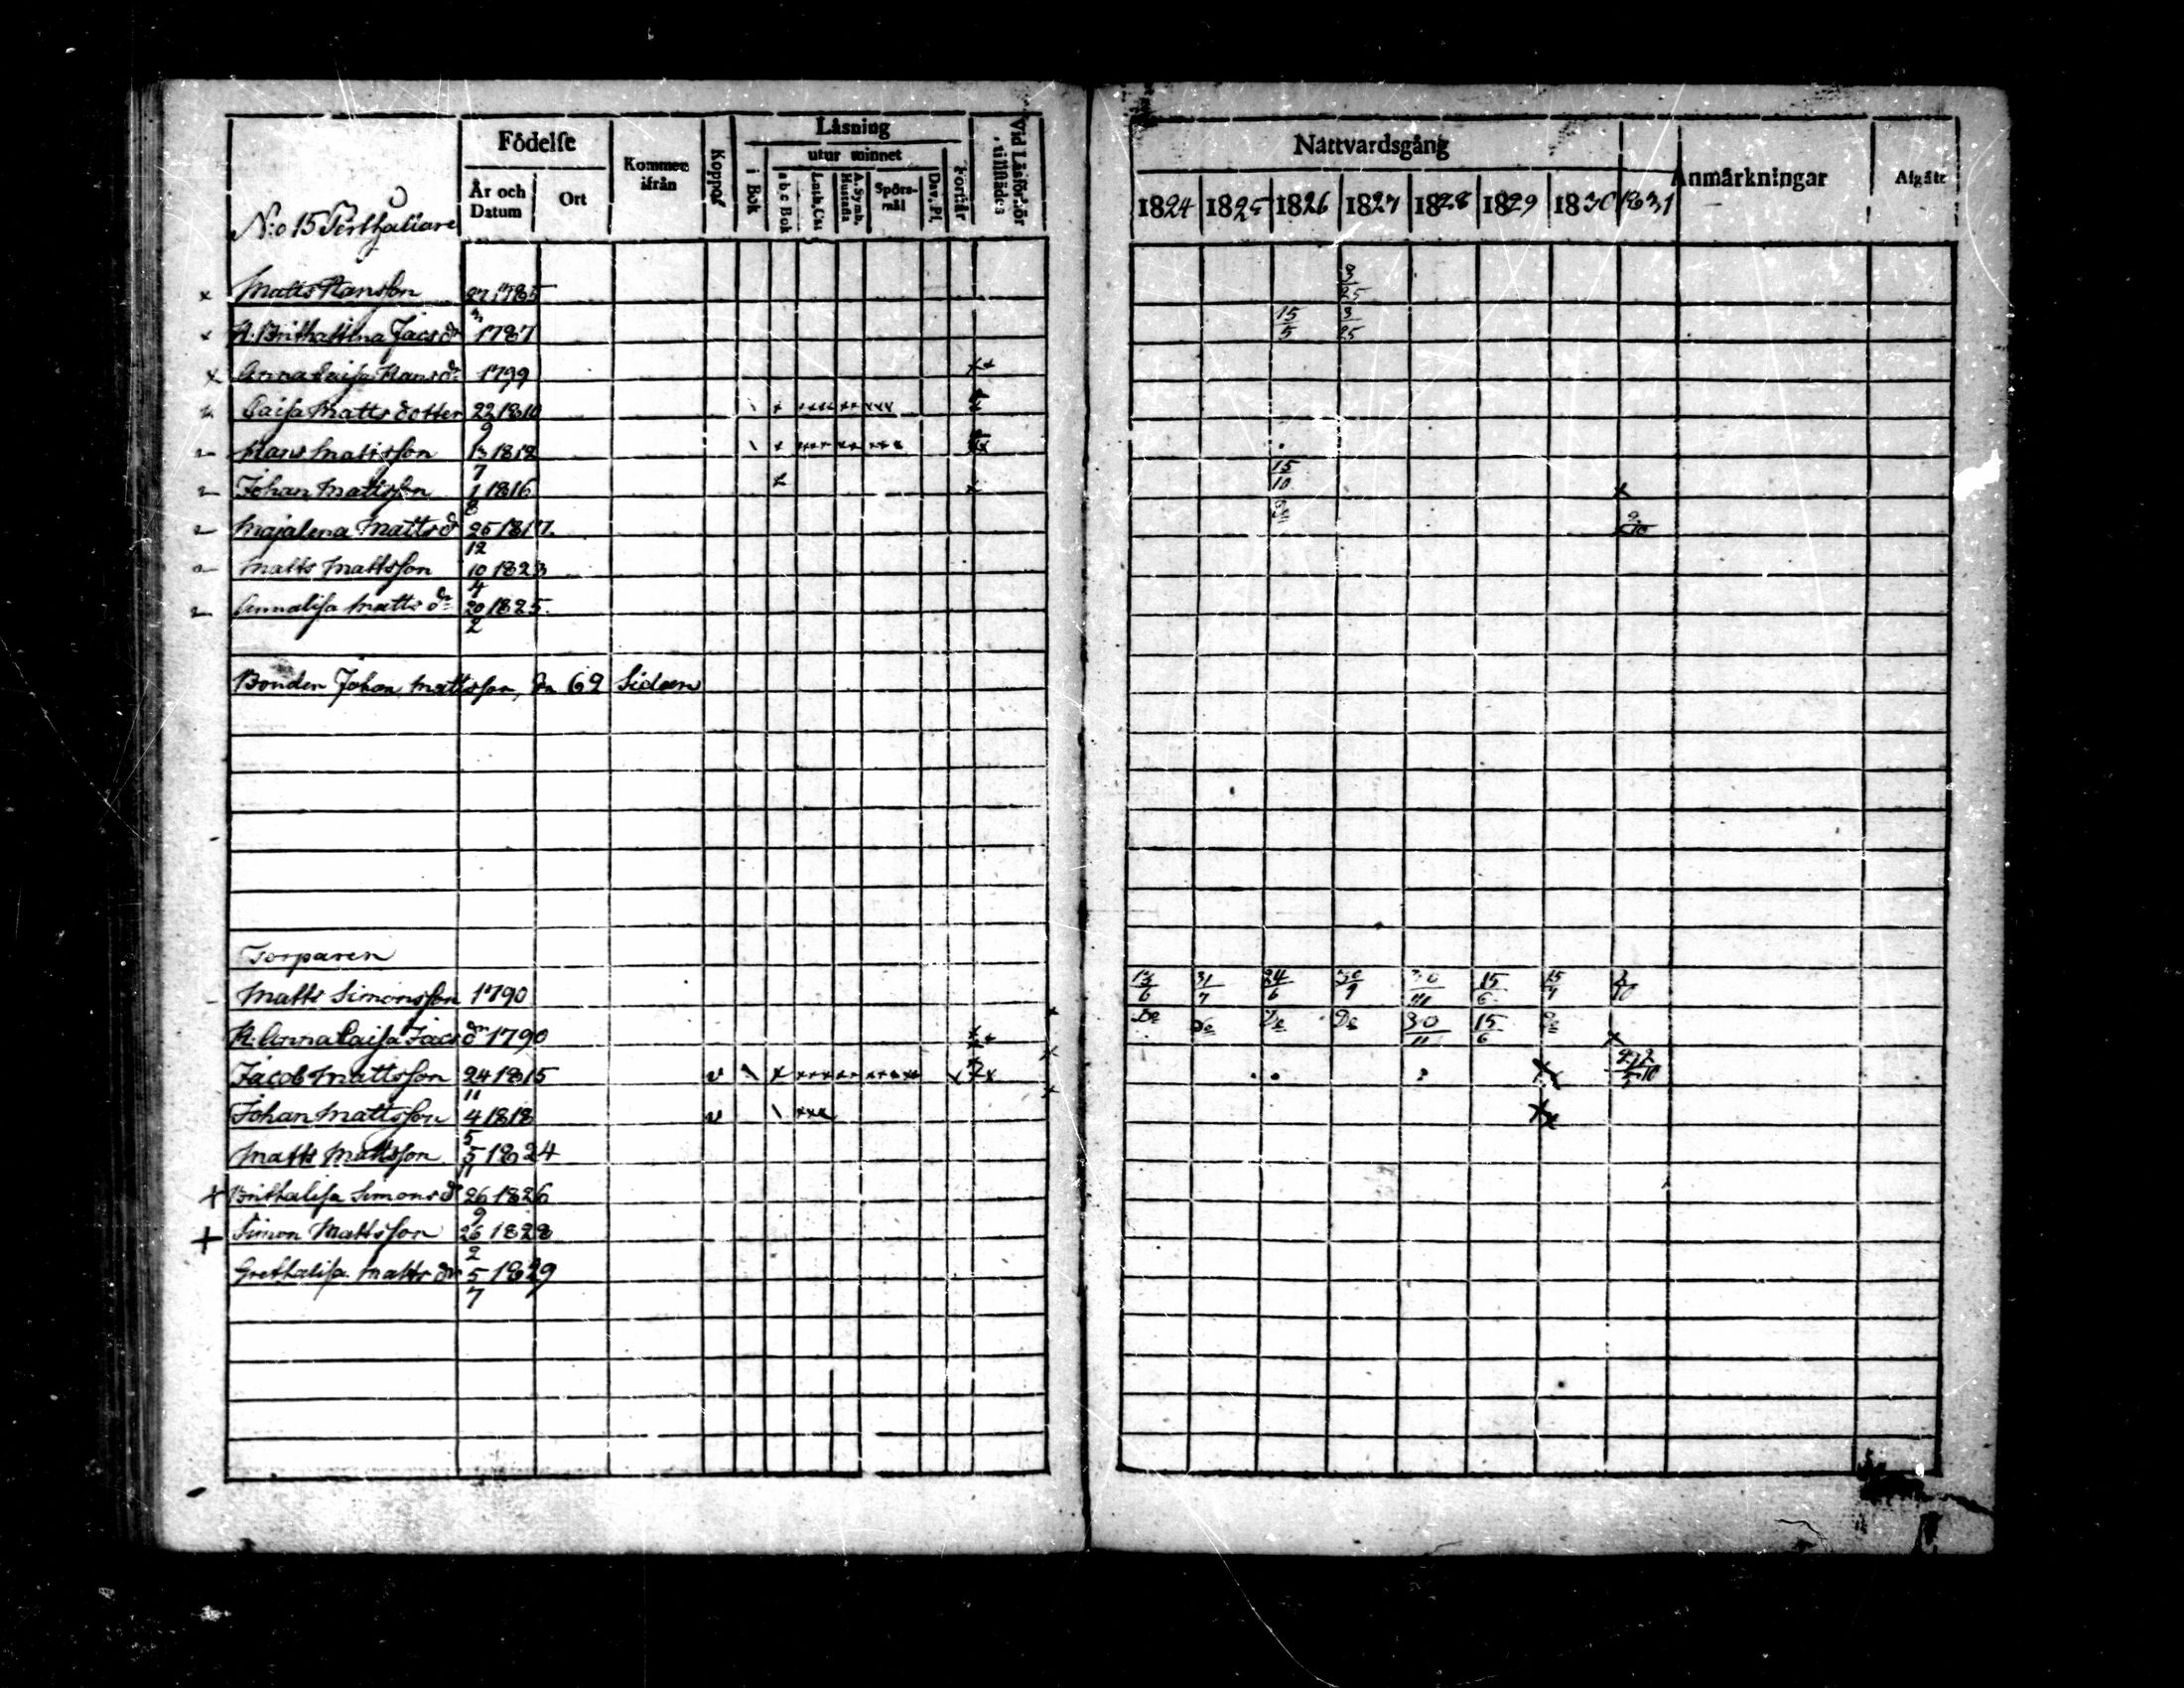 N:o 15 Perthaliare
Födelse
År och Datum
Ort
Kommen ifrån
Koppor
Läsning
i Bok
utur minnet
a b c Bok
Luth. Cat.
A. Symb. Hustafla
Spörsmål
Dav. Ps.
Förstår
Vid Läsförhör tillstädes
Nattvardsgång
1824 1825 1826 1827 1828 1829 1830 1831
Anmärkningar
Afgått
x Matts Hansson 27 1785 3/25
x H. Brithalena Jacs dr 1787 15/5 3/25
x Anna Caisa Hans dr 1799 x x
Caisa Matts dotter 22/9 1810
Hans Mattsson 13/7 1812
Johan Mattsson 1/8 1816 x x 15/10 x
Majalena Matts dr 25/12 1817.
Matts Mattsson 10/4 1823
Annalisa Matts dr 20/2 1825.
Bonden Johan Mattsson, på 69 Sidan
Torparen
Matts Simonsson 1790 13/6 31/7 24/6 30/9 15/6
H. Anna Caisa Jacs dr 1790 Do Do Do Do 30/11 15/6 Do x
Jacob Mattsson 24/11 1815 v
Johan Mattsson 4/5 1818 v \ xxx
Matts Mattsson 5/11 1824
+ Brithalisa Simons dr 26/9 1826
+ Simon Mattsson 26/2 1828
Grethalisa Matts dr 5/7 1829